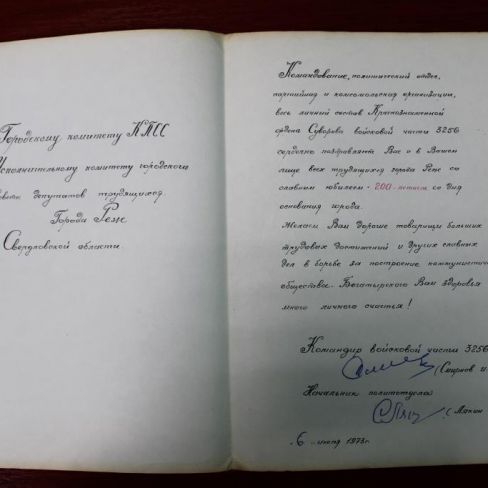 Городскому комитету КПСС
Исполнительному комитету городского
Совета депутатов трудящихся
Города Реж
Свердловской области.
Командование, политический отдел,
партийная и комсомольская организации,
весь личный состав Краснознаменной
ордена Суворова войсковой части 3256
сердечно поздравляет Вас и в Вашем
лице всех трудящихся города Реже со
славным юбилеем - 200-летием со дня
основания города.
Желаем Вам дорогие товарищи больших
трудовых достижений и других славных
дел в борьбе за построение коммунистичес
общества. Богатырского Вам здоровья
много личного счастья!
Командир войсковой части 3256
(Смирнов и
Начальник политотдела
(Ляхин
6 июля 1973г.